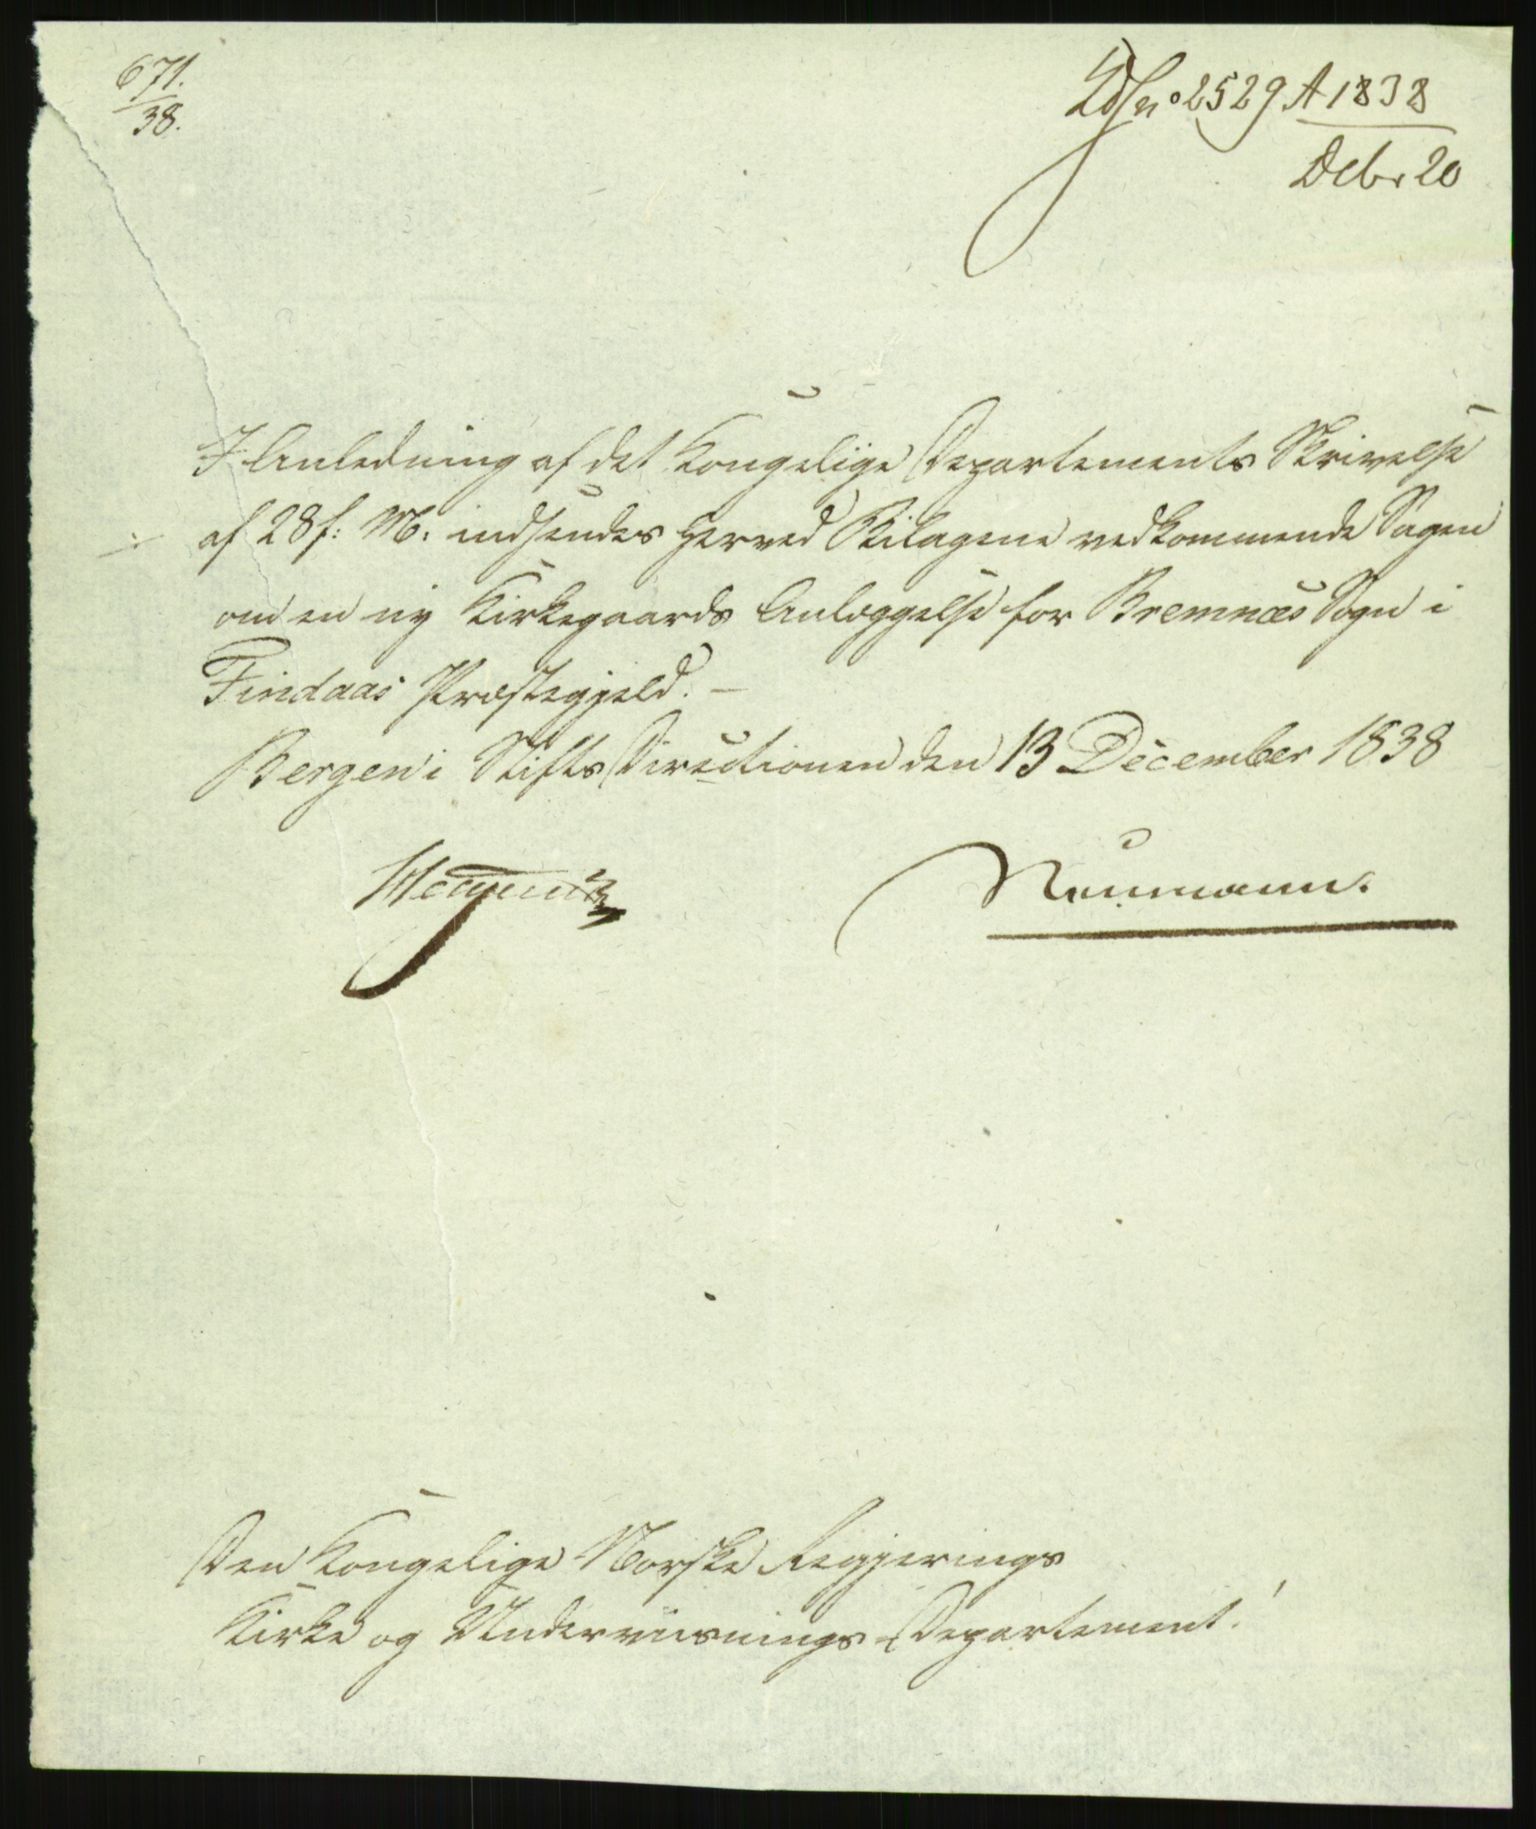 671.
38.
No 2529 A 1838
Dcbr 20
I Anledning af det Kongelige Departements Skrivelse
af 28 f: M: indsendes herved Bilagene vedkommende Sagen
om en ny Kirkegaards Anlæggelse for Bremnæs Sogn i
Findaas Præstegjeld. –
Bergen i Stifts Directionen den 13 December 1838
Neumann.
Den Kongelige Norske Regjerings
Kirke og Underviisnings-Departement!